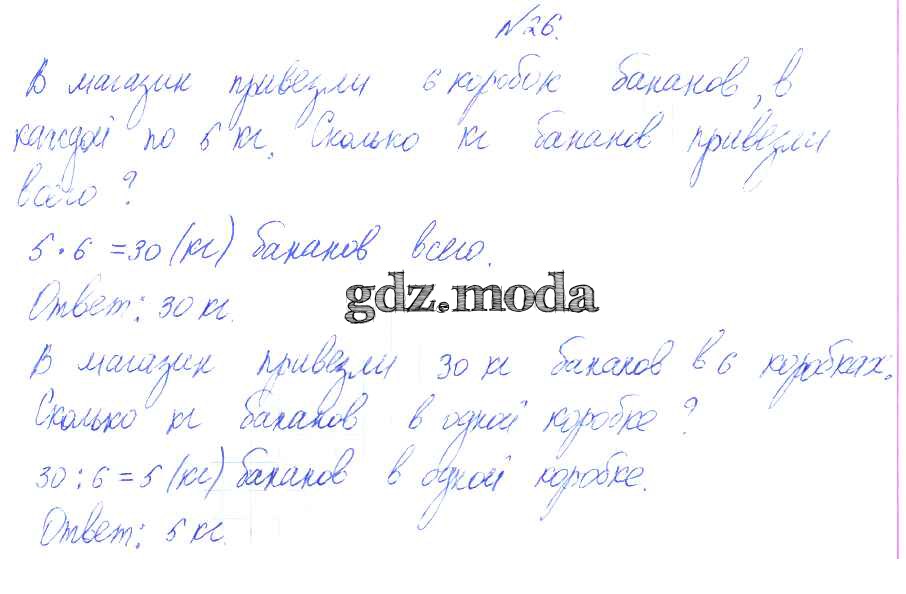 №26.
В магазин привезли 6 коробок бананов, в
каждой по 5 кг. Сколько кг бананов привезли
всего?
5 · 6 = 30 (кг) бананов всего.
Ответ: 30 кг.
gdz.moda
В магазин привезли 30 кг бананов в 6 коробках.
Сколько кг бананов в одной коробке?
30 : 6 = 5 (кг) бананов в одной коробке.
Ответ: 5 кг.